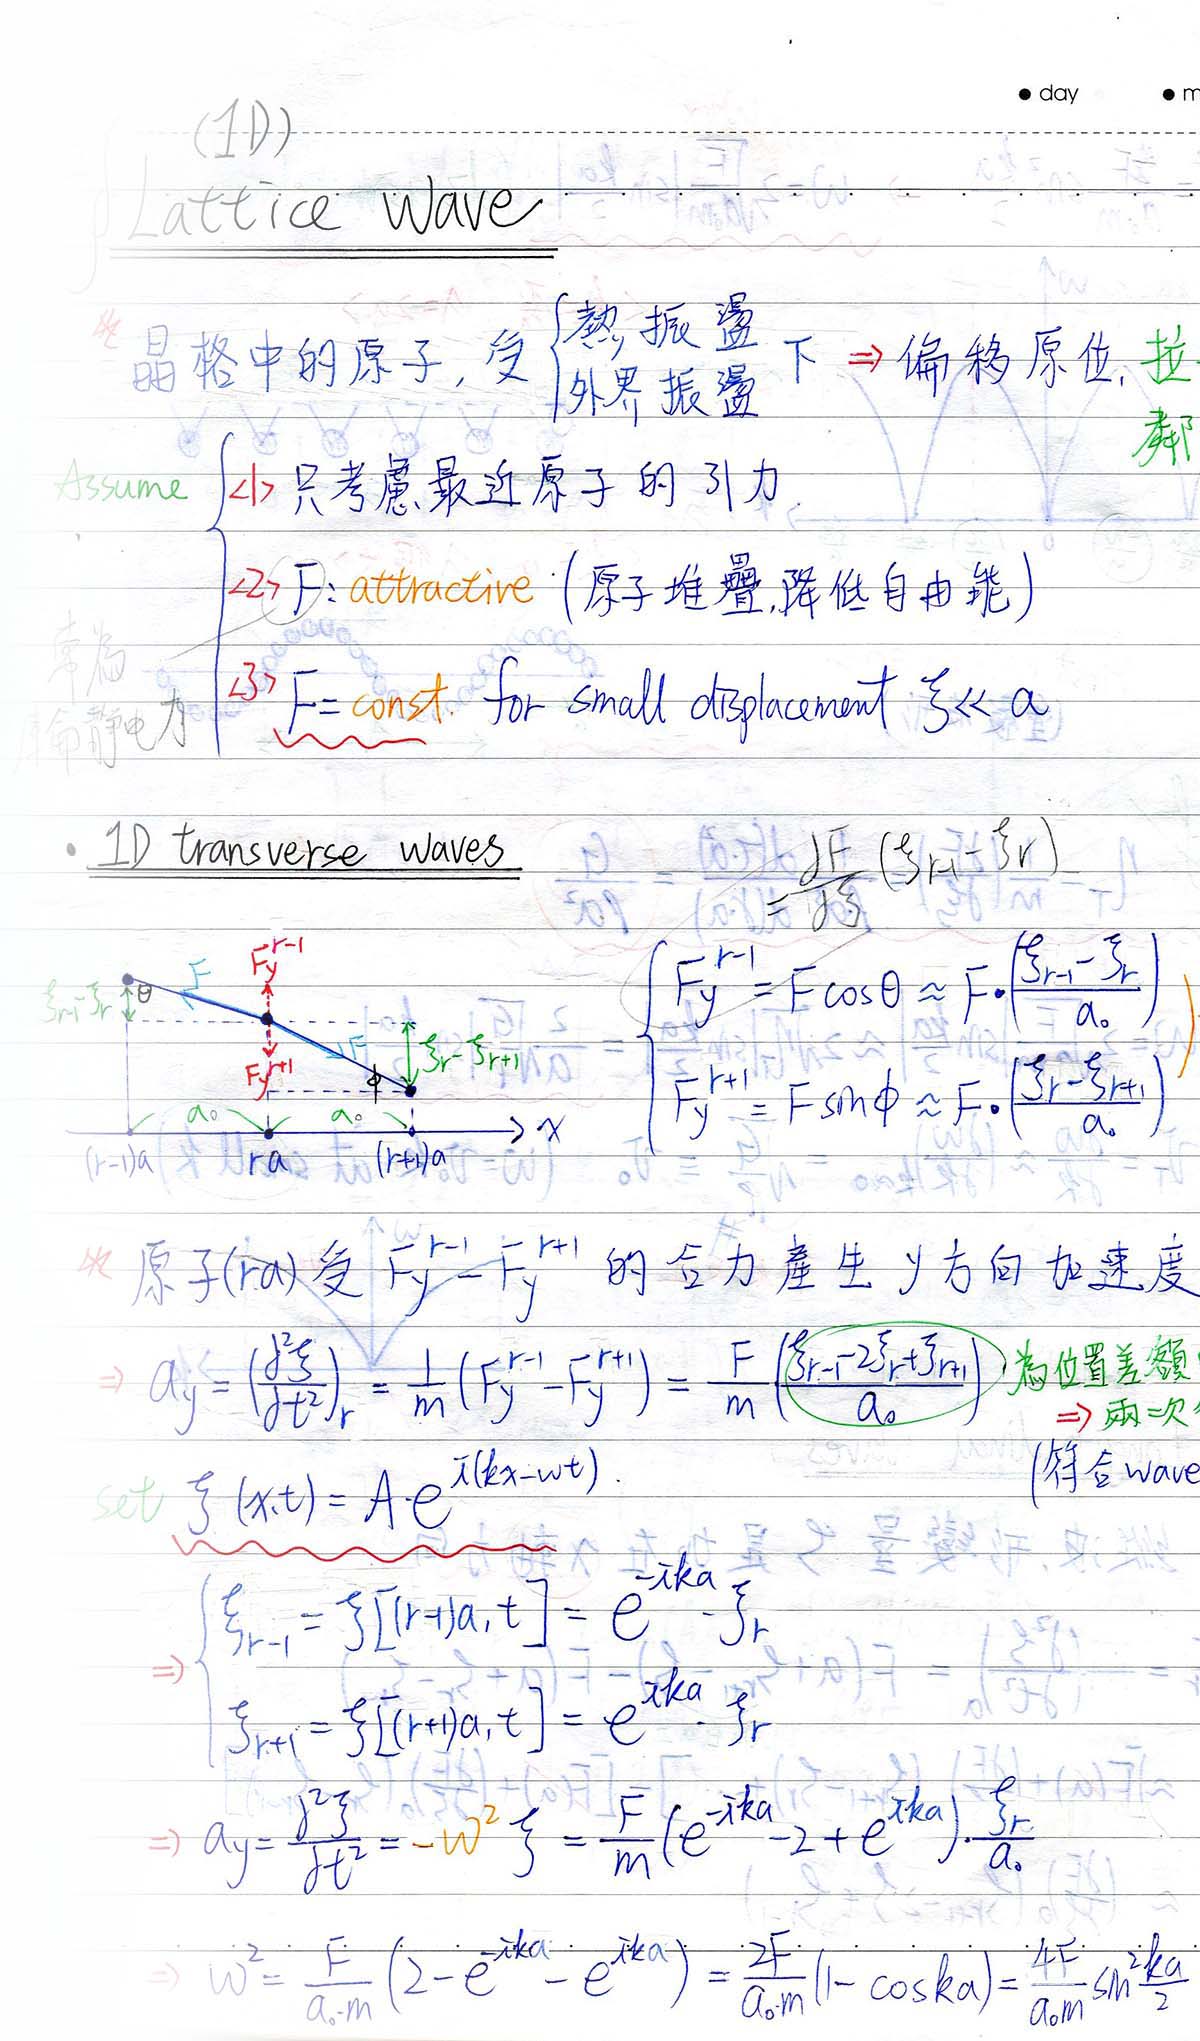 ● day ● m
(1D)
Lattice Wave
晶格中的原子, 受 { 熱振盪 / 外界振盪 下 ⇒ 偏移原位, 拉
鄰
Assume <1> 只考慮最近原子的引力.
<2> F: attractive (原子堆疊,降低自由能)
常為
庫侖靜電力
<3> F = const. for small displacement ξ << a
• 1D transverse waves
= ∂F/∂ξ (ξr-1 - ξr)
Fy^r-1 = F cosθ ≈ F·((ξr-1 - ξr)/a₀)
Fy^r+1 = F sinϕ ≈ F·((ξr - ξr+1)/a₀)
Fy^r-1
F
θ
ξr-1 - ξr
Fy^r+1
F
ϕ
ξr - ξr+1
a₀ a₀
x
(r-1)a ra (r+1)a
※ 原子(ra)受 Fy^r-1 - Fy^r+1 的合力產生 y方向加速度
⇒ ay = (∂²ξ/∂t²)r = 1/m (Fy^r-1 - Fy^r+1) = F/m ((ξr-1 - 2ξr + ξr+1)/a₀) 為位置差額
⇒ 兩次
(符合wave
set ξ(x,t) = A·e^i(kx-wt).
⇒ { ξr-1 = ξ[(r-1)a, t] = e^-ika · ξr
ξr+1 = ξ[(r+1)a, t] = e^ika · ξr
⇒ ay = ∂²ξ/∂t² = -w² ξ = F/m (e^-ika - 2 + e^ika)·ξr/a₀
⇒ w² = F/(a₀·m) (2 - e^-ika - e^ika) = 2F/(a₀·m) (1 - coska) = 4F/(a₀m) sin² ka/2